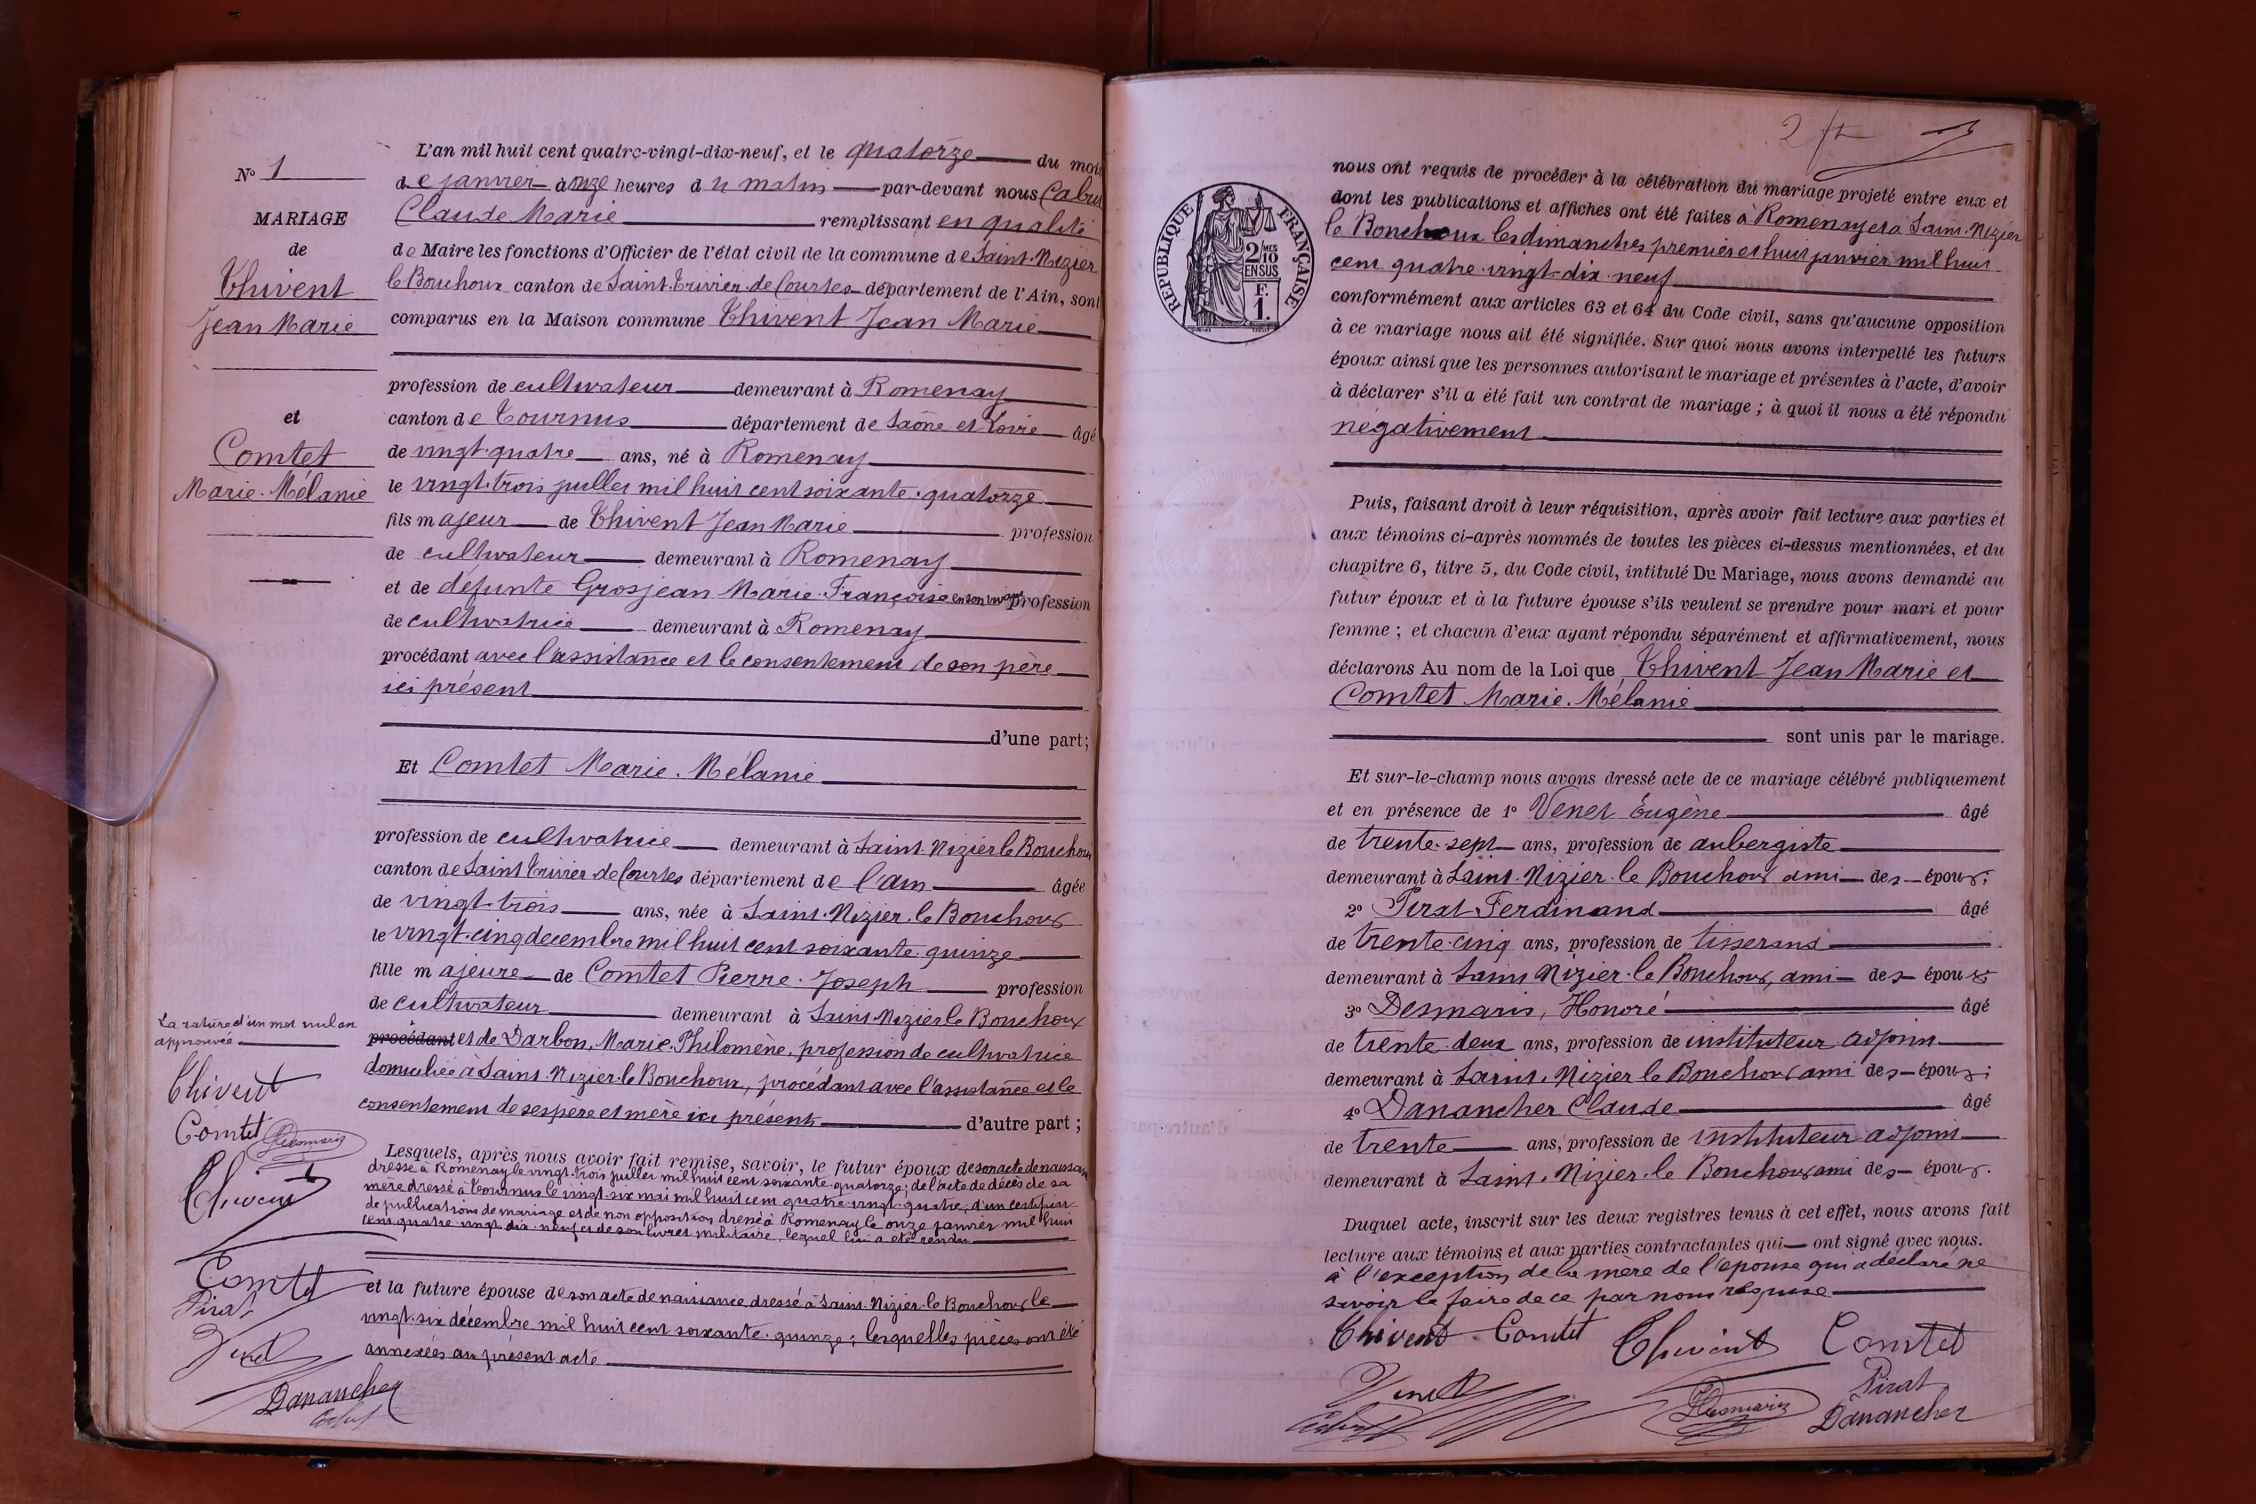 N° 1
MARIAGE
de
Thivent
Jean Marie
et
Comtet
Marie-Mélanie
L'an mil huit cent quatre-vingt-dix-neuf, et le quatorze du mois
de janvier à onze heures du matin par-devant nous Cabut
Claude Marie remplissant en qualité
de Maire les fonctions d'Officier de l'état civil de la commune de Saint-Nizier
le Bouchoux canton de Saint-Trivier-de-Courtes département de l'Ain, sont
comparus en la Maison commune Thivent Jean Marie
profession de cultivateur demeurant à Romenay
canton de Tournus département de Saône et Loire âgé
de vingt-quatre ans, né à Romenay
le vingt-trois juillet mil huit cent soixante-quatorze
fils majeur de Thivent Jean Marie profession
de cultivateur demeurant à Romenay
et de défunte Grosjean Marie-Françoise en son vivant profession
de cultivatrice demeurant à Romenay
procédant avec l'assistance et le consentement de son père
ici présent
d'une part;
Et Comtet Marie-Mélanie
profession de cultivatrice demeurant à Saint-Nizier le Bouchoux
canton de Saint Trivier de Courtes département de l'Ain âgée
de vingt-trois ans, née à Saint-Nizier-le Bouchoux
le vingt-cinq decembre mil huit cent soixante-quinze
fille majeure de Comtet Pierre-Joseph profession
de cultivateur demeurant à Saint-Nizier le Bouchoux
procédant et de Darbon, Marie-Philomène, profession de cultivatrice
domiciliée à Saint-Nizier-le Bouchoux, procédant avec l'assistance et le
consentement de ses père et mère ici présents d'autre part;
La rature d'un mot nul en
approuvée
Thivent
Comtet Desmaris
Thivent
Comtet
Pirat
Venet
Danancher
Cabut
Lesquels, après nous avoir fait remise, savoir, le futur époux de son acte de naissance
dressé à Romenay le vingt-trois juillet mil huit cent soixante-quatorze; de l'acte de décès de sa
mère dressé à Tournus le vingt-six mai mil huit cent quatre-vingt-quatre, d'un certificat
de publications de mariage et de non opposition dressé à Romenay le onze janvier mil huit
cent quatre-vingt-dix-neuf et de son livret militaire, lequel lui a été rendu
et la future épouse de son acte de naissance dressé à Saint-Nizier-le Bouchoux le
vingt-six décembre mil huit cent soixante-quinze; lesquelles pièces ont été
annexées au présent acte
2
RÉPUBLIQUE FRANÇAISE
2/10 EN SUS
F. 1.
nous ont requis de procéder à la célébration du mariage projeté entre eux et
dont les publications et affiches ont été faites à Romenay et à Saint-Nizier
le Bouchoux les dimanches premier et huit janvier mil huit
cent quatre-vingt-dix-neuf
conformément aux articles 63 et 64 du Code civil, sans qu'aucune opposition
à ce mariage nous ait été signifiée. Sur quoi nous avons interpellé les futurs
époux ainsi que les personnes autorisant le mariage et présentes à l'acte, d'avoir
à déclarer s'il a été fait un contrat de mariage; à quoi il nous a été répondu
négativement
Puis, faisant droit à leur réquisition, après avoir fait lecture aux parties et
aux témoins ci-après nommés de toutes les pièces ci-dessus mentionnées, et du
chapitre 6, titre 5, du Code civil, intitulé Du Mariage, nous avons demandé au
futur époux et à la future épouse s'ils veulent se prendre pour mari et pour
femme; et chacun d'eux ayant répondu séparément et affirmativement, nous
déclarons Au nom de la Loi que Thivent Jean Marie et
Comtet Marie-Mélanie
sont unis par le mariage.
Et sur-le-champ nous avons dressé acte de ce mariage célébré publiquement
et en présence de 1° Venet Eugène âgé
de trente-sept ans, profession de aubergiste
demeurant à Saint-Nizier-le Bouchoux ami des époux;
2° Pirat Ferdinand âgé
de trente-cinq ans, profession de tisserand
demeurant à Saint Nizier-le Bouchoux, ami des époux
3° Desmaris, Honoré âgé
de trente-deux ans, profession de instituteur adjoint
demeurant à Saint-Nizier le Bouchoux ami des époux;
4° Danancher Claude âgé
de trente ans, profession de instituteur adjoint
demeurant à Saint-Nizier-le Bouchoux ami des époux.
Duquel acte, inscrit sur les deux registres tenus à cet effet, nous avons fait
lecture aux témoins et aux parties contractantes qui ont signé avec nous.
à l'exception de la mère de l'épouse qui a déclaré ne
savoir le faire de ce par nous requise
Thivent Comtet Thivent Comtet
Venet Pirat
Cabut Desmaris Danancher